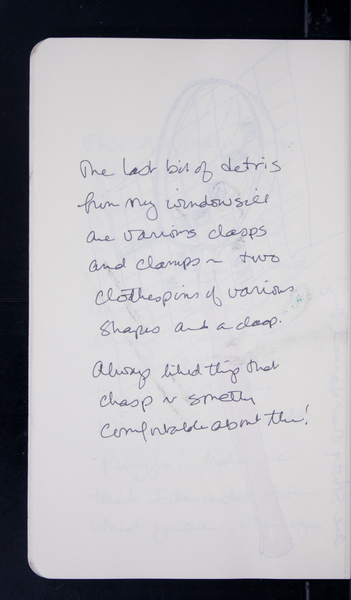 The last bit of detris
from my windowsill
are various clasps
and clamps ~ two
clothespins of various
shapes and a clasp.
Always liked thing that
clasp ~ smthg
comfortable about them!